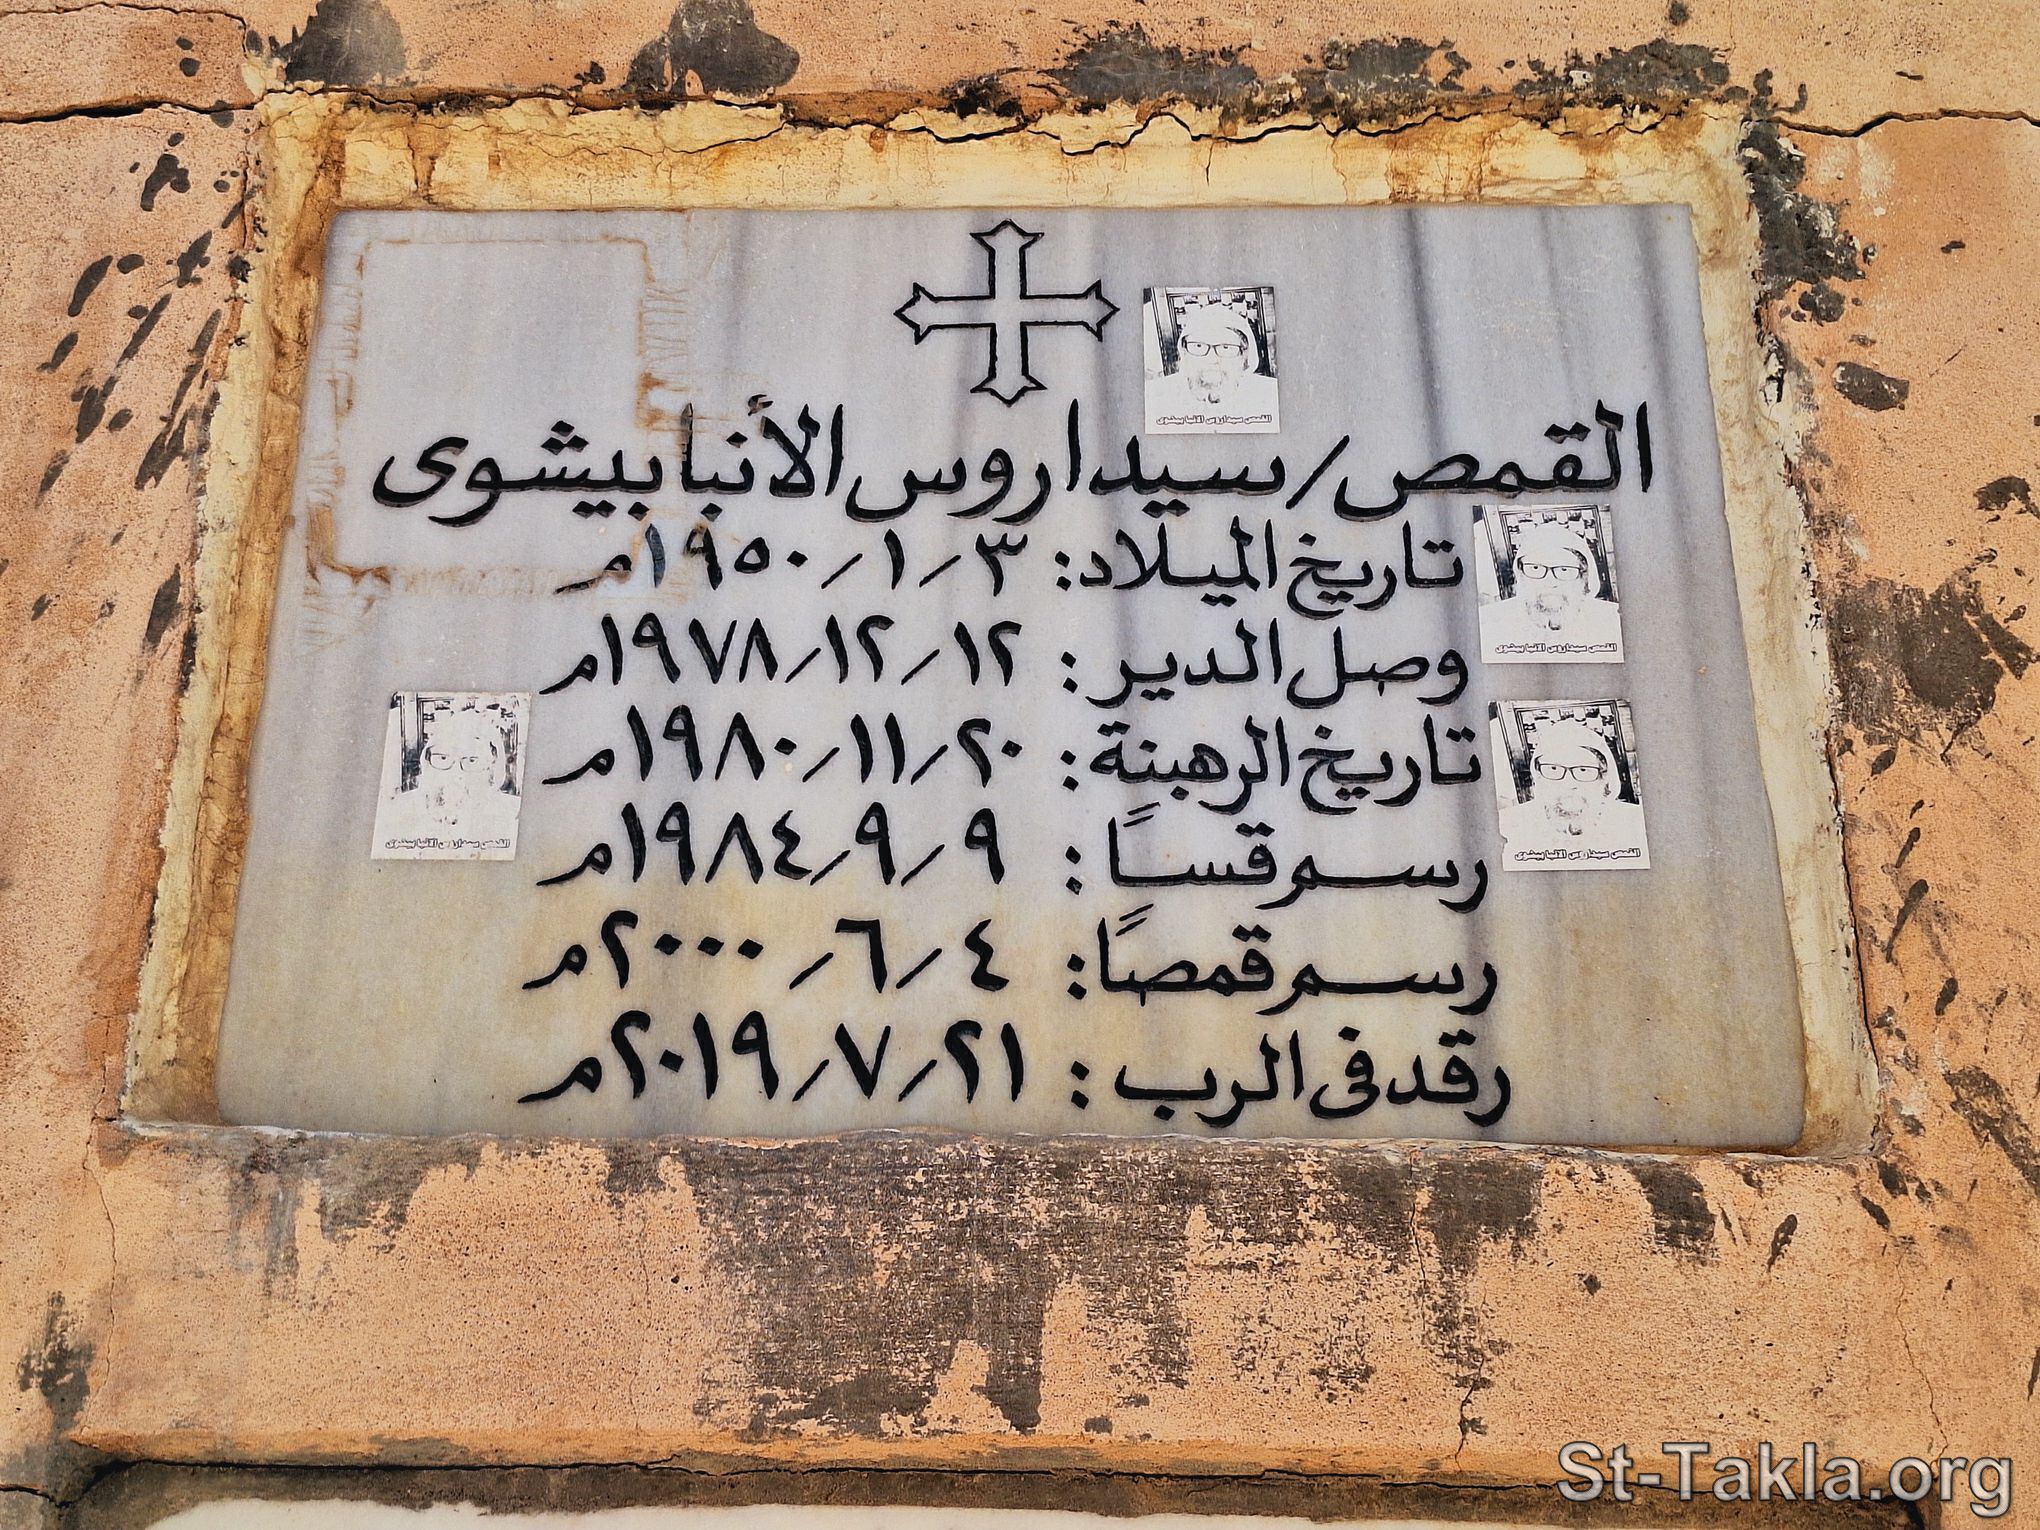 القمص سيداروس الانبا بيشوى
القمص/سيداروس الأنبا بيشوى
تاريخ الميلاد: ٣/١/١٩٥٠م
القمص سيداروس الانبا بيشوى
وصل الدير: ١٢/١٢/١٩٧٨م
تاريخ الرهبنة: ٢٠/١١/١٩٨٠م
القمص سيداروس الانبا بيشوى
القمص سيداروس الانبا بيشوى
رسم قسـاً: ٩/٩/١٩٨٤م
رسم قمصاً: ٤/٦/٢٠٠٠م
رقد فى الرب: ٢١/٧/٢٠١٩م
St-Takla.org